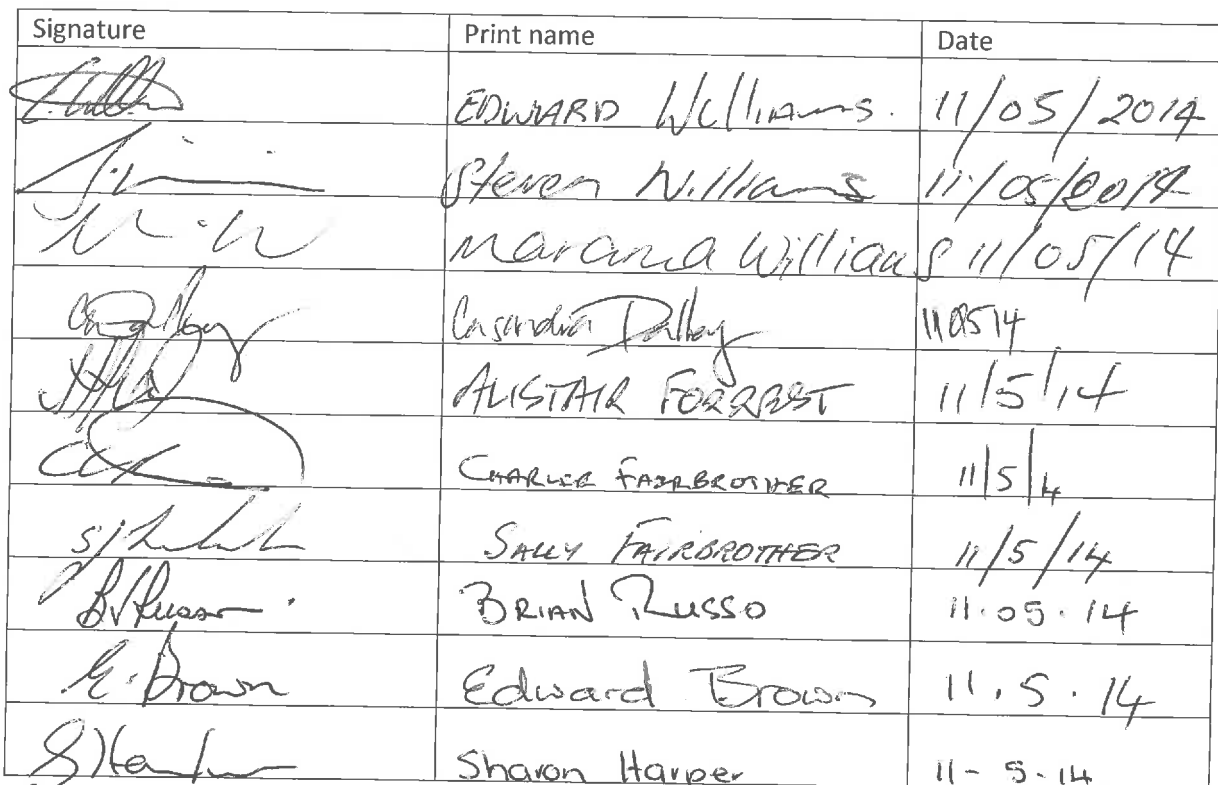 Signature Print name Date
EDWARD Williams. 11/05/2014
Steven Williams 11/05/2014
Marama Williams 11/05/14
Casandra Dalley 110514
ALISTAIR FORREST 11/5/14
CHARLES FAIRBROTHER 11/5/14
SALLY FAIRBROTHER 11/5/14
BV Russo. BRIAN RUSSO 11.05.14
E. Brown Edward Brown 11.5.14
Sharon Harper 11-5-14